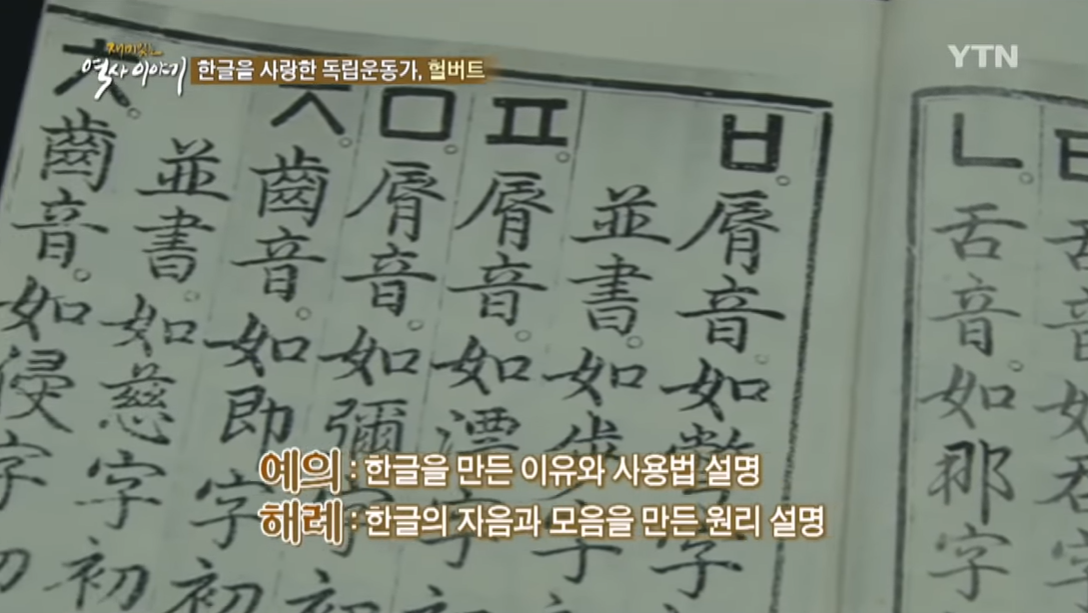 재미있는
역사 이야기
한글을 사랑한 독립운동가, 헐버트
YTN
ㄴ。舌音。如那字
ㅂ。脣音。如彆字
並書。如步字
ㅍ。脣音。如漂字
ㅁ。脣音。如彌字
ㅈ。齒音。如即字初
並書。如慈字初
ㅊ。齒音。如侵字初
예의 : 한글을 만든 이유와 사용법 설명
해례 : 한글의 자음과 모음을 만든 원리 설명